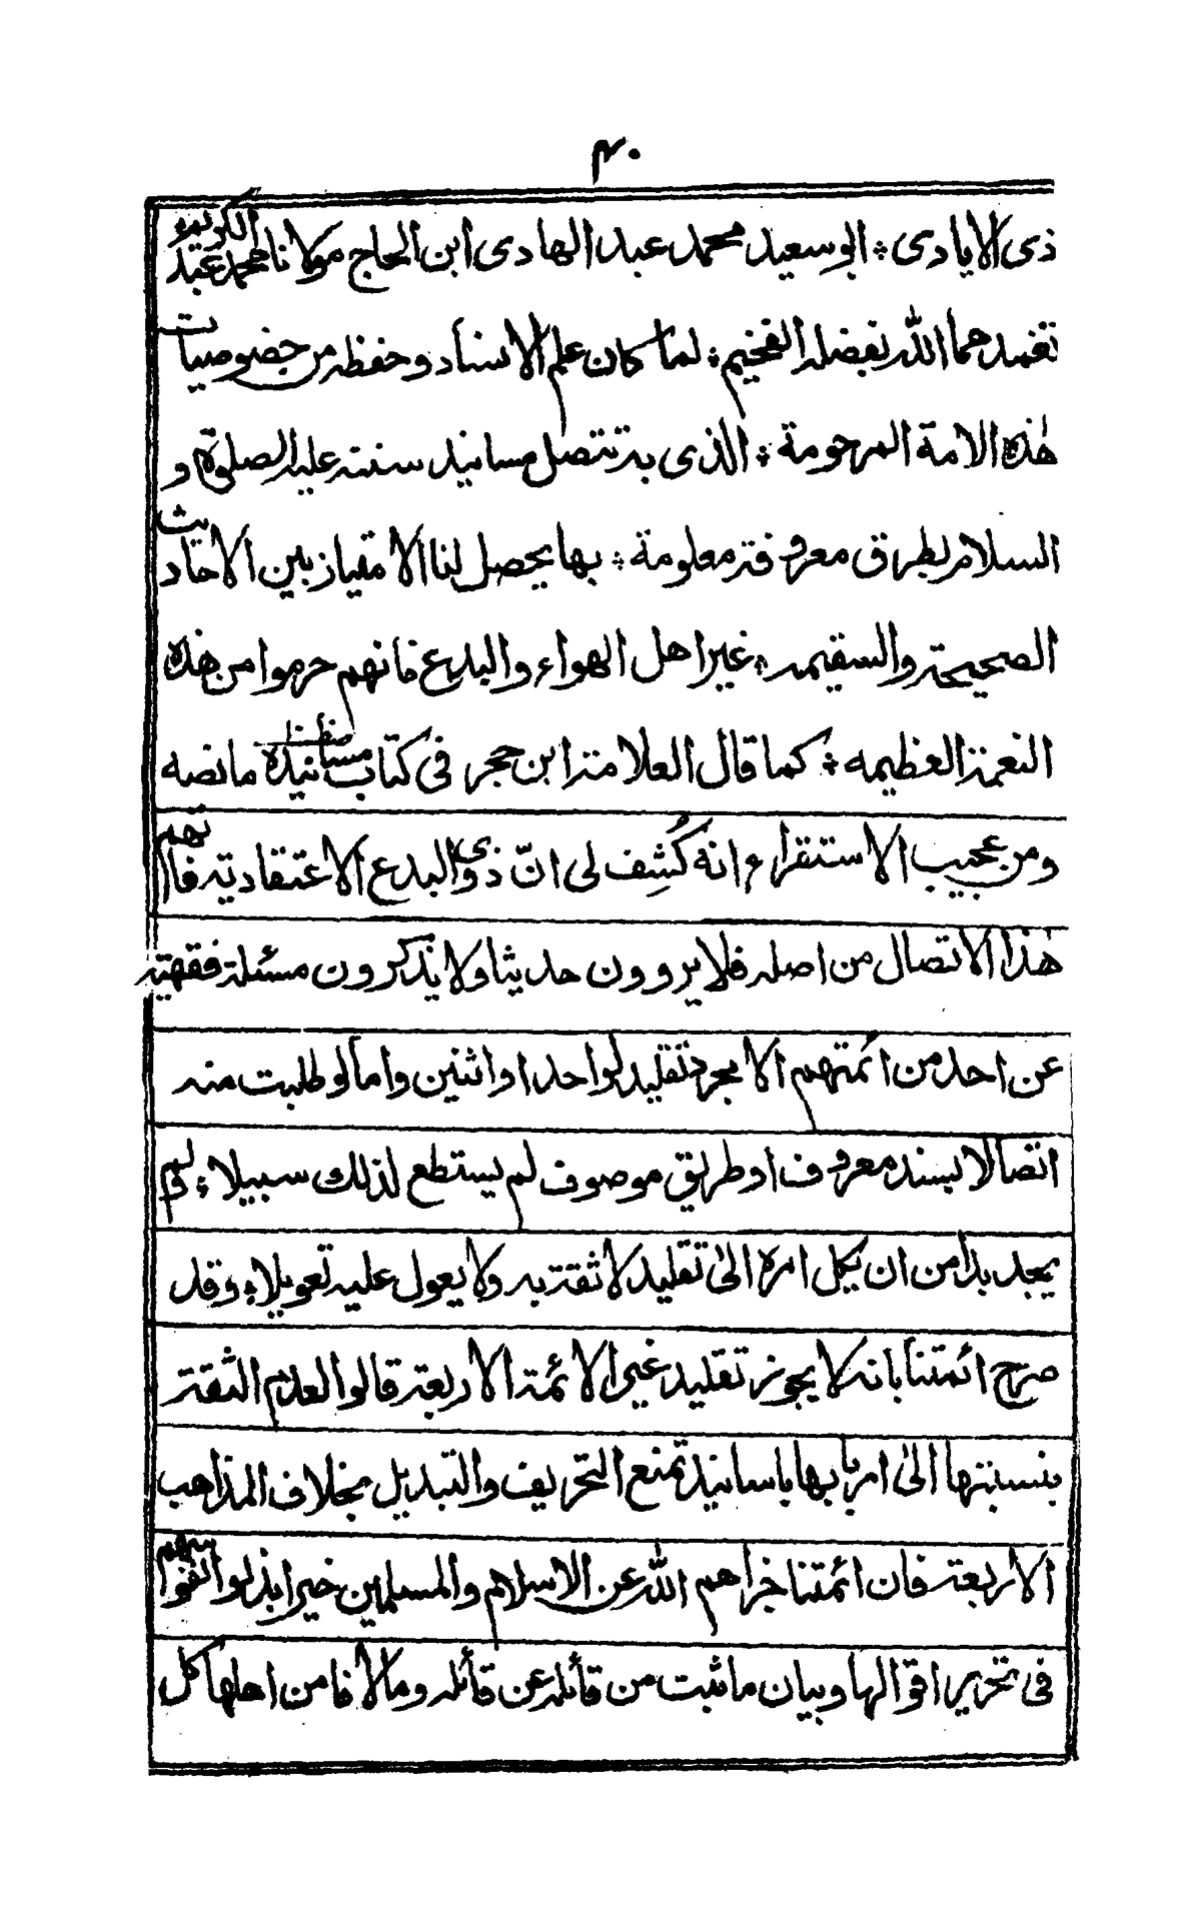 ۴۰
ذی الایادی ؞ ابو سعید محمد عبد الهادی ابن الحاج مولانا محمد عبد الکریم
تغمدهما الله بفضله الفخیم ؞ لما کان علم الاسناد وحفظه من خصوصیات
هٰذه الامة المرحومة ؞ الذی به تتصل مسانید سنته علیه الصلوة و
السلام بطرق معروفة معلومة ؞ بها یحصل لنا الامتیاز بین الاحادیث
الصحیحة والسقیمه ؞ غیر اهل الهواء والبدع فانهم حرموا من هذه
النعمة العظیمه ؞ کما قال العلامة ابن حجر فی کتاب مسانیده ما نصه
ومن عجیب الاستقراء انه کُشِف لی انّ ذوی البدع الاعتقادیة فاتهم
هٰذا الاتصال من اصله فلا یروون حدیثا ولا یذکرون مسئلة فقهیة
عن احد من ائمتهم الا بمجرد تقلید لواحد او اثنین واما لو طلبت منه
اتصالا بسند معروف او طریق موصوف لم یستطع لذلك سبیلاء ولم
یجد بدا من ان یکل امره الیٰ تقلید لا ثقة به ولا یعول علیه تعویلاء وقد
صرح ائمتنا بانه لا یجوز تقلید غیر الائمة الاربعة قالوا لعدم الثقة
بنسبتها الیٰ اربابها باسانید تمنع التحریف والتبدیل بخلاف المذاهب
الاربعة فان ائمتنا جزاهم الله عن الاسلام والمسلمین خیرا بذلوا انفسهم
فی تحریر اقوالها وبیان ما ثبت من قائله عن قائله وما لا فامن اهلها کل